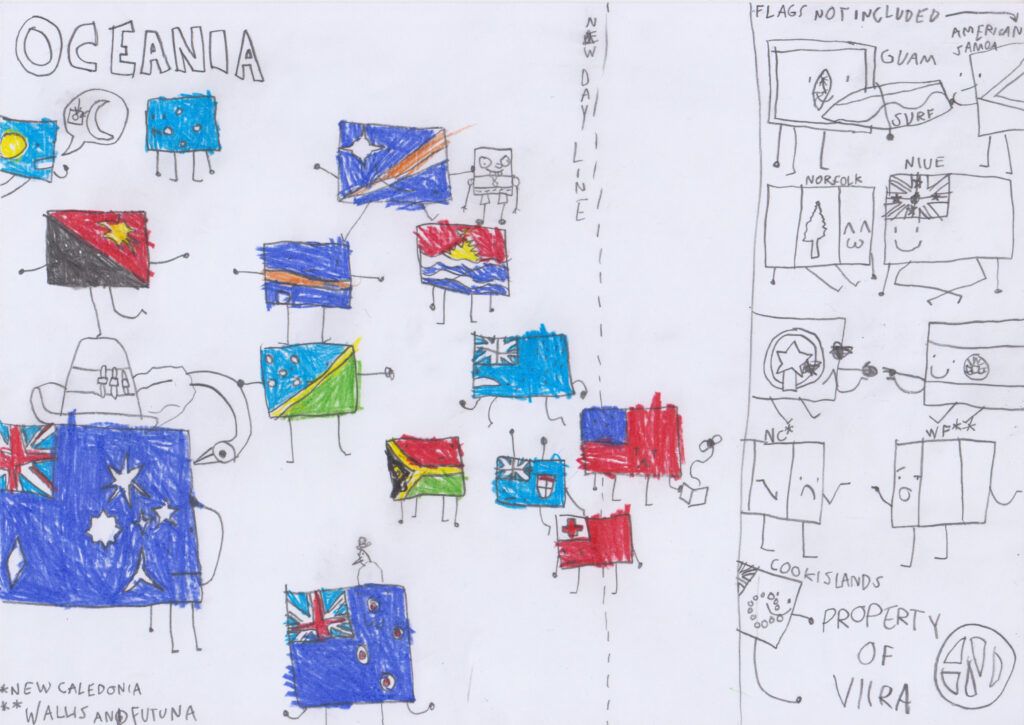 OCEANIA
NEW DAY LINE
FLAGS NOT INCLUDED
AMERICAN
SAMOA
GUAM
SURF
NORFOLK
NIUE
NC*
WF**
COOK ISLANDS
PROPERTY
OF
VIIRA
*NEW CALEDONIA
**WALLIS AND FUTUNA